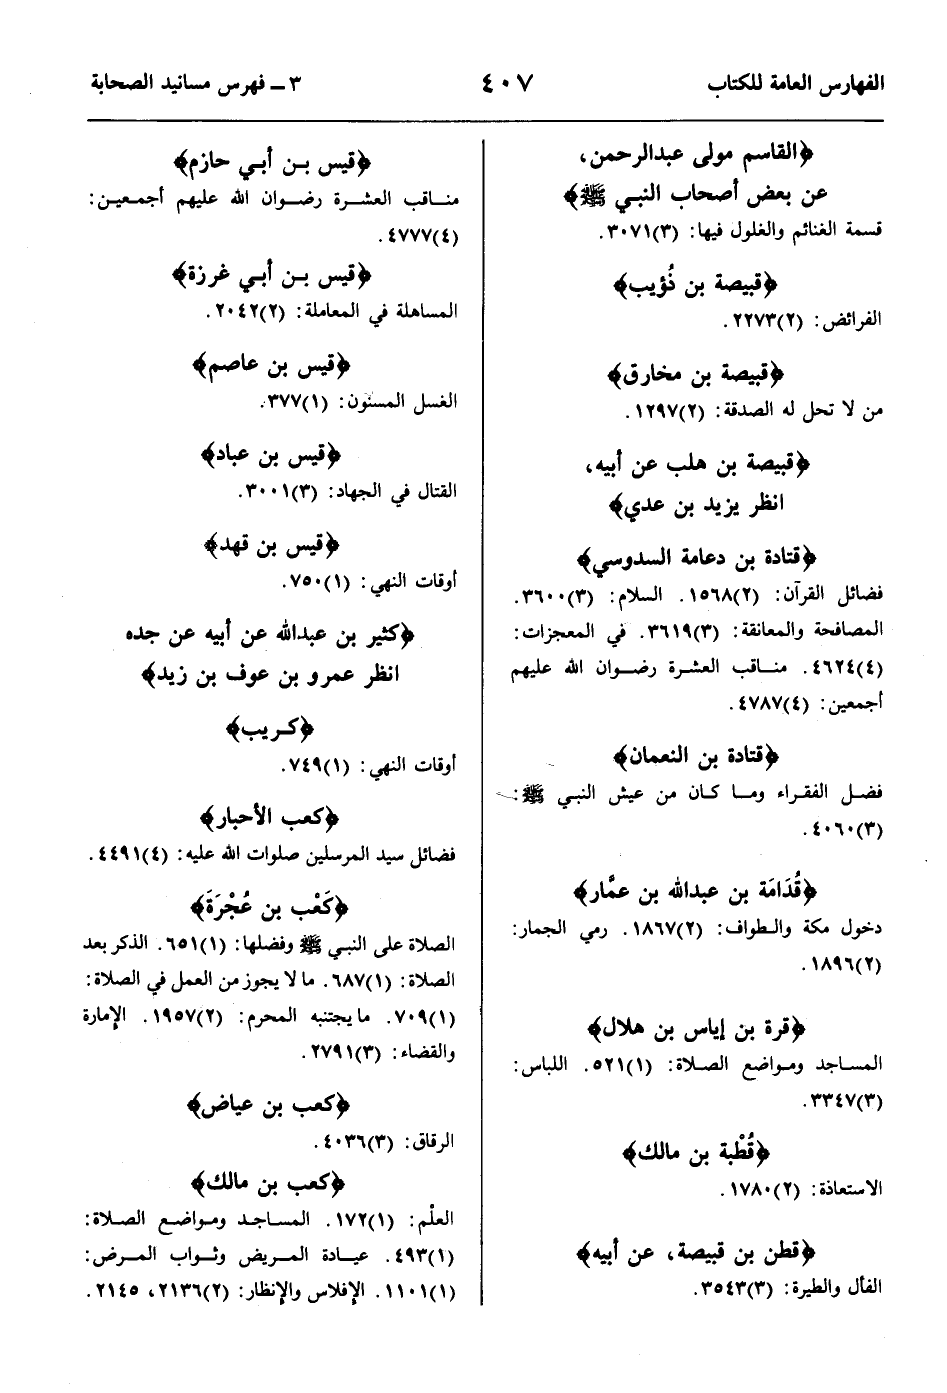 الفهارس العامة للكتاب
٤٠٧
٣ - فهرس مسانيد الصحابة
﴿القاسم مولى عبدالرحمن،
عن بعض أصحاب النبي ﷺ﴾
قسمة الغنائم والغلول فيها: (٣)٣٠٧١.
﴿قبيصة بن ذُؤيب﴾
الفرائض: (٢)٢٢٧٣.
﴿قبيصة بن مخارق﴾
من لا تحل له الصدقة: (٢)١٢٩٧.
﴿قبيصة بن هلب عن أبيه،
انظر يزيد بن عدي﴾
﴿قتادة بن دعامة السدوسي﴾
فضائل القرآن: (٢)١٥٦٨. السلام: (٣)٣٦٠٠.
المصافحة والمعانقة: (٣)٣٦١٩. في المعجزات:
(٤)٤٦٢٤. مناقب العشرة رضوان الله عليهم
أجمعين: (٤)٤٧٨٧.
﴿قتادة بن النعمان﴾
فضل الفقراء وما كان من عيش النبي ﷺ:
(٣)٤٠٦٠.
﴿قُدَامَة بن عبدالله بن عمَّار﴾
دخول مكة والطواف: (٢)١٨٦٧. رمي الجمار:
(٢)١٨٩٦.
﴿قرة بن إياس بن هلال﴾
المساجد ومواضع الصلاة: (١)٥٢١. اللباس:
(٣)٣٣٤٧.
﴿قُطْبة بن مالك﴾
الاستعاذة: (٢)١٧٨٠.
﴿قطن بن قبيصة، عن أبيه﴾
الفأل والطيرة: (٣)٣٥٤٣.
﴿قيس بن أبي حازم﴾
مناقب العشرة رضوان الله عليهم أجمعين:
(٤)٤٧٧٧.
﴿قيس بن أبي غرزة﴾
المساهلة في المعاملة: (٢)٢٠٤٢.
﴿قيس بن عاصم﴾
الغسل المسنون: (١)٣٧٧.
﴿قيس بن عباد﴾
القتال في الجهاد: (٣)٣٠٠١.
﴿قيس بن قهد﴾
أوقات النهي: (١)٧٥٠.
﴿كثير بن عبدالله عن أبيه عن جده
انظر عمرو بن عوف بن زيد﴾
﴿كريب﴾
أوقات النهي: (١)٧٤٩.
﴿كعب الأحبار﴾
فضائل سيد المرسلين صلوات الله عليه: (٤)٤٤٩١.
﴿كَعْب بن عُجْرَةَ﴾
الصلاة على النبي ﷺ وفضلها: (١)٦٥١. الذكر بعد
الصلاة: (١)٦٨٧. ما لا يجوز من العمل في الصلاة:
(١)٧٠٩. ما يجتنبه المحرم: (٢)١٩٥٧. الإمارة
والقضاء: (٣)٢٧٩١.
﴿كعب بن عياض﴾
الرقاق: (٣)٤٠٣٦.
﴿كعب بن مالك﴾
العلْم: (١)١٧٢. المساجد ومواضع الصلاة:
(١)٤٩٣. عيادة المريض وثواب المرض:
(١)١١٠١. الإفلاس والإنظار: (٢)٢١٣٦، ٢١٤٥.